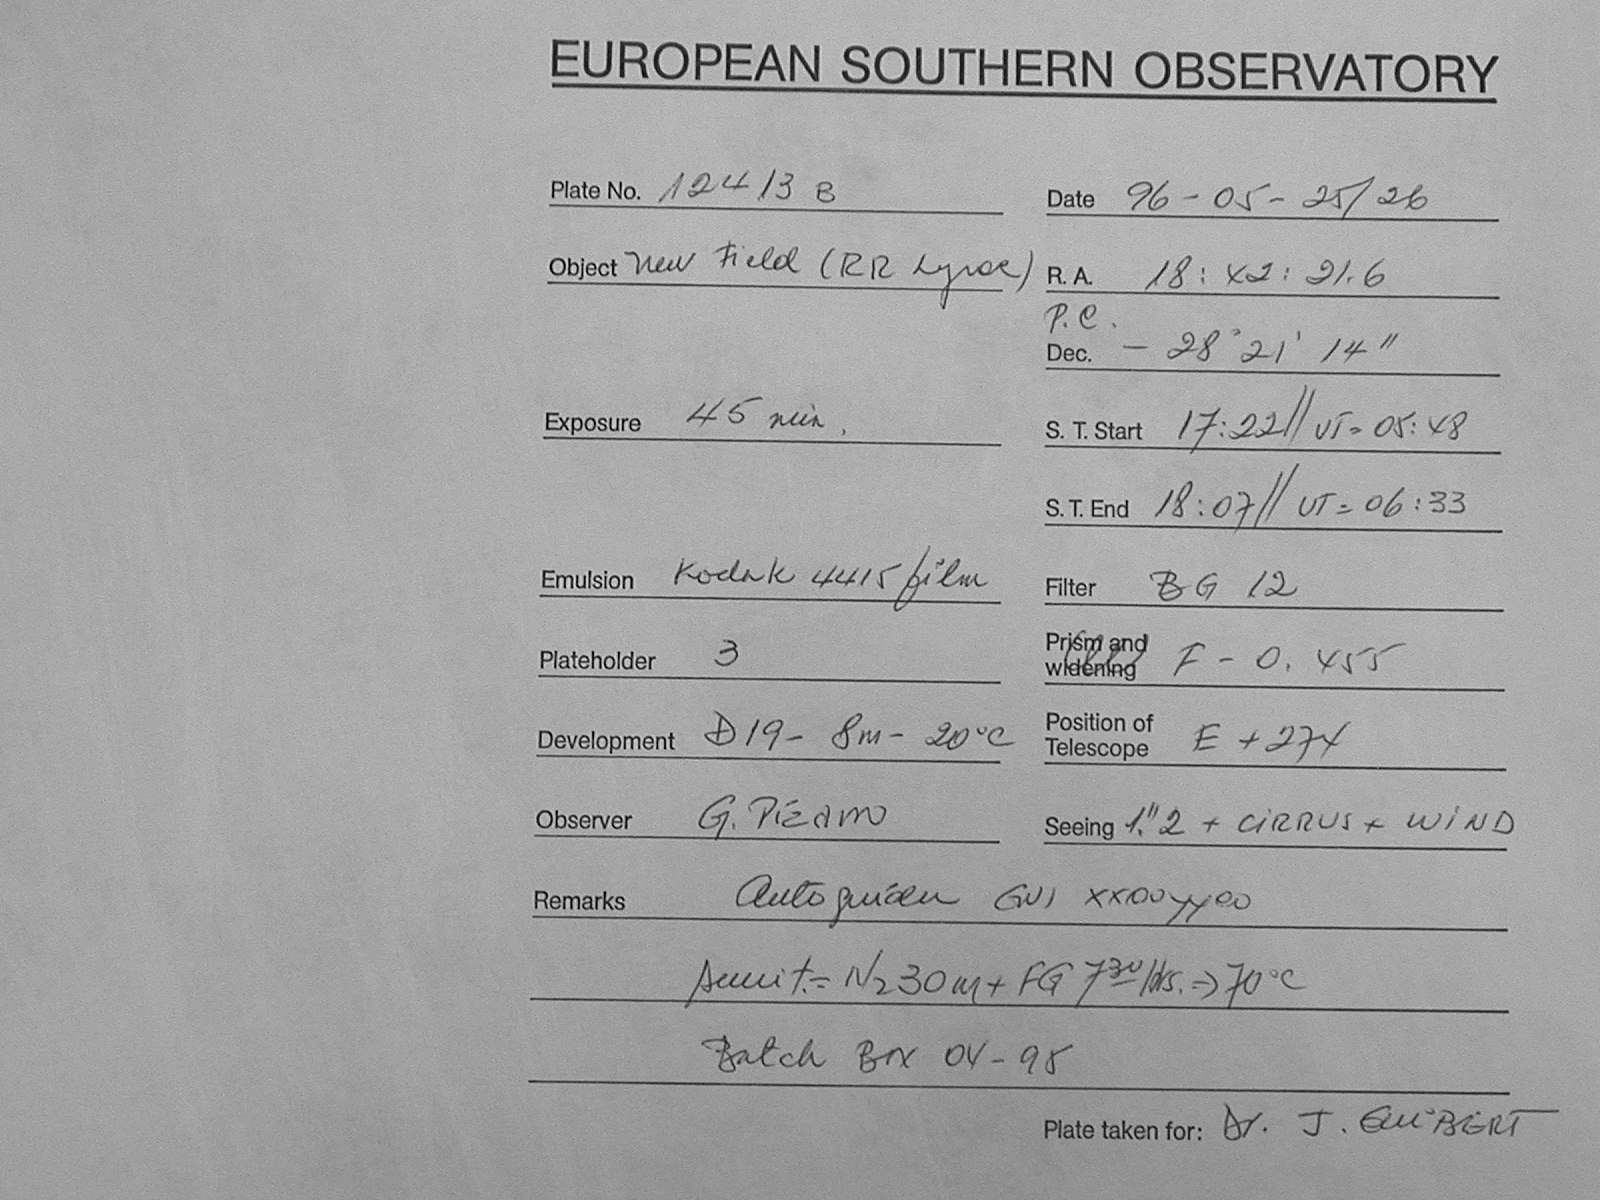 EUROPEAN SOUTHERN OBSERVATORY
Plate No. 12413 B
Date 96-05-25/26
Object New Field (RR Lyrae)
R. A. 18: 42: 21.6
P.C.
Dec. - 28° 21' 14"
Exposure 45 min.
S. T. Start 17:22 // UT= 05:48
S. T. End 18:07 // UT= 06:33
Emulsion Kodak 4415 film
Filter BG 12
Plateholder 3
Prism and widening F - 0.455
Development D19- 8m- 20°C
Position of Telescope E +274
Observer G. Pizarro
Seeing 1."2 + CiRRUS + WiND
Remarks Autoguider GUI xx00yy00
N2 30m + FG 7 30/hrs. => 70°C
Batch Box 04-95
Plate taken for: Dr. J. GUiBERT